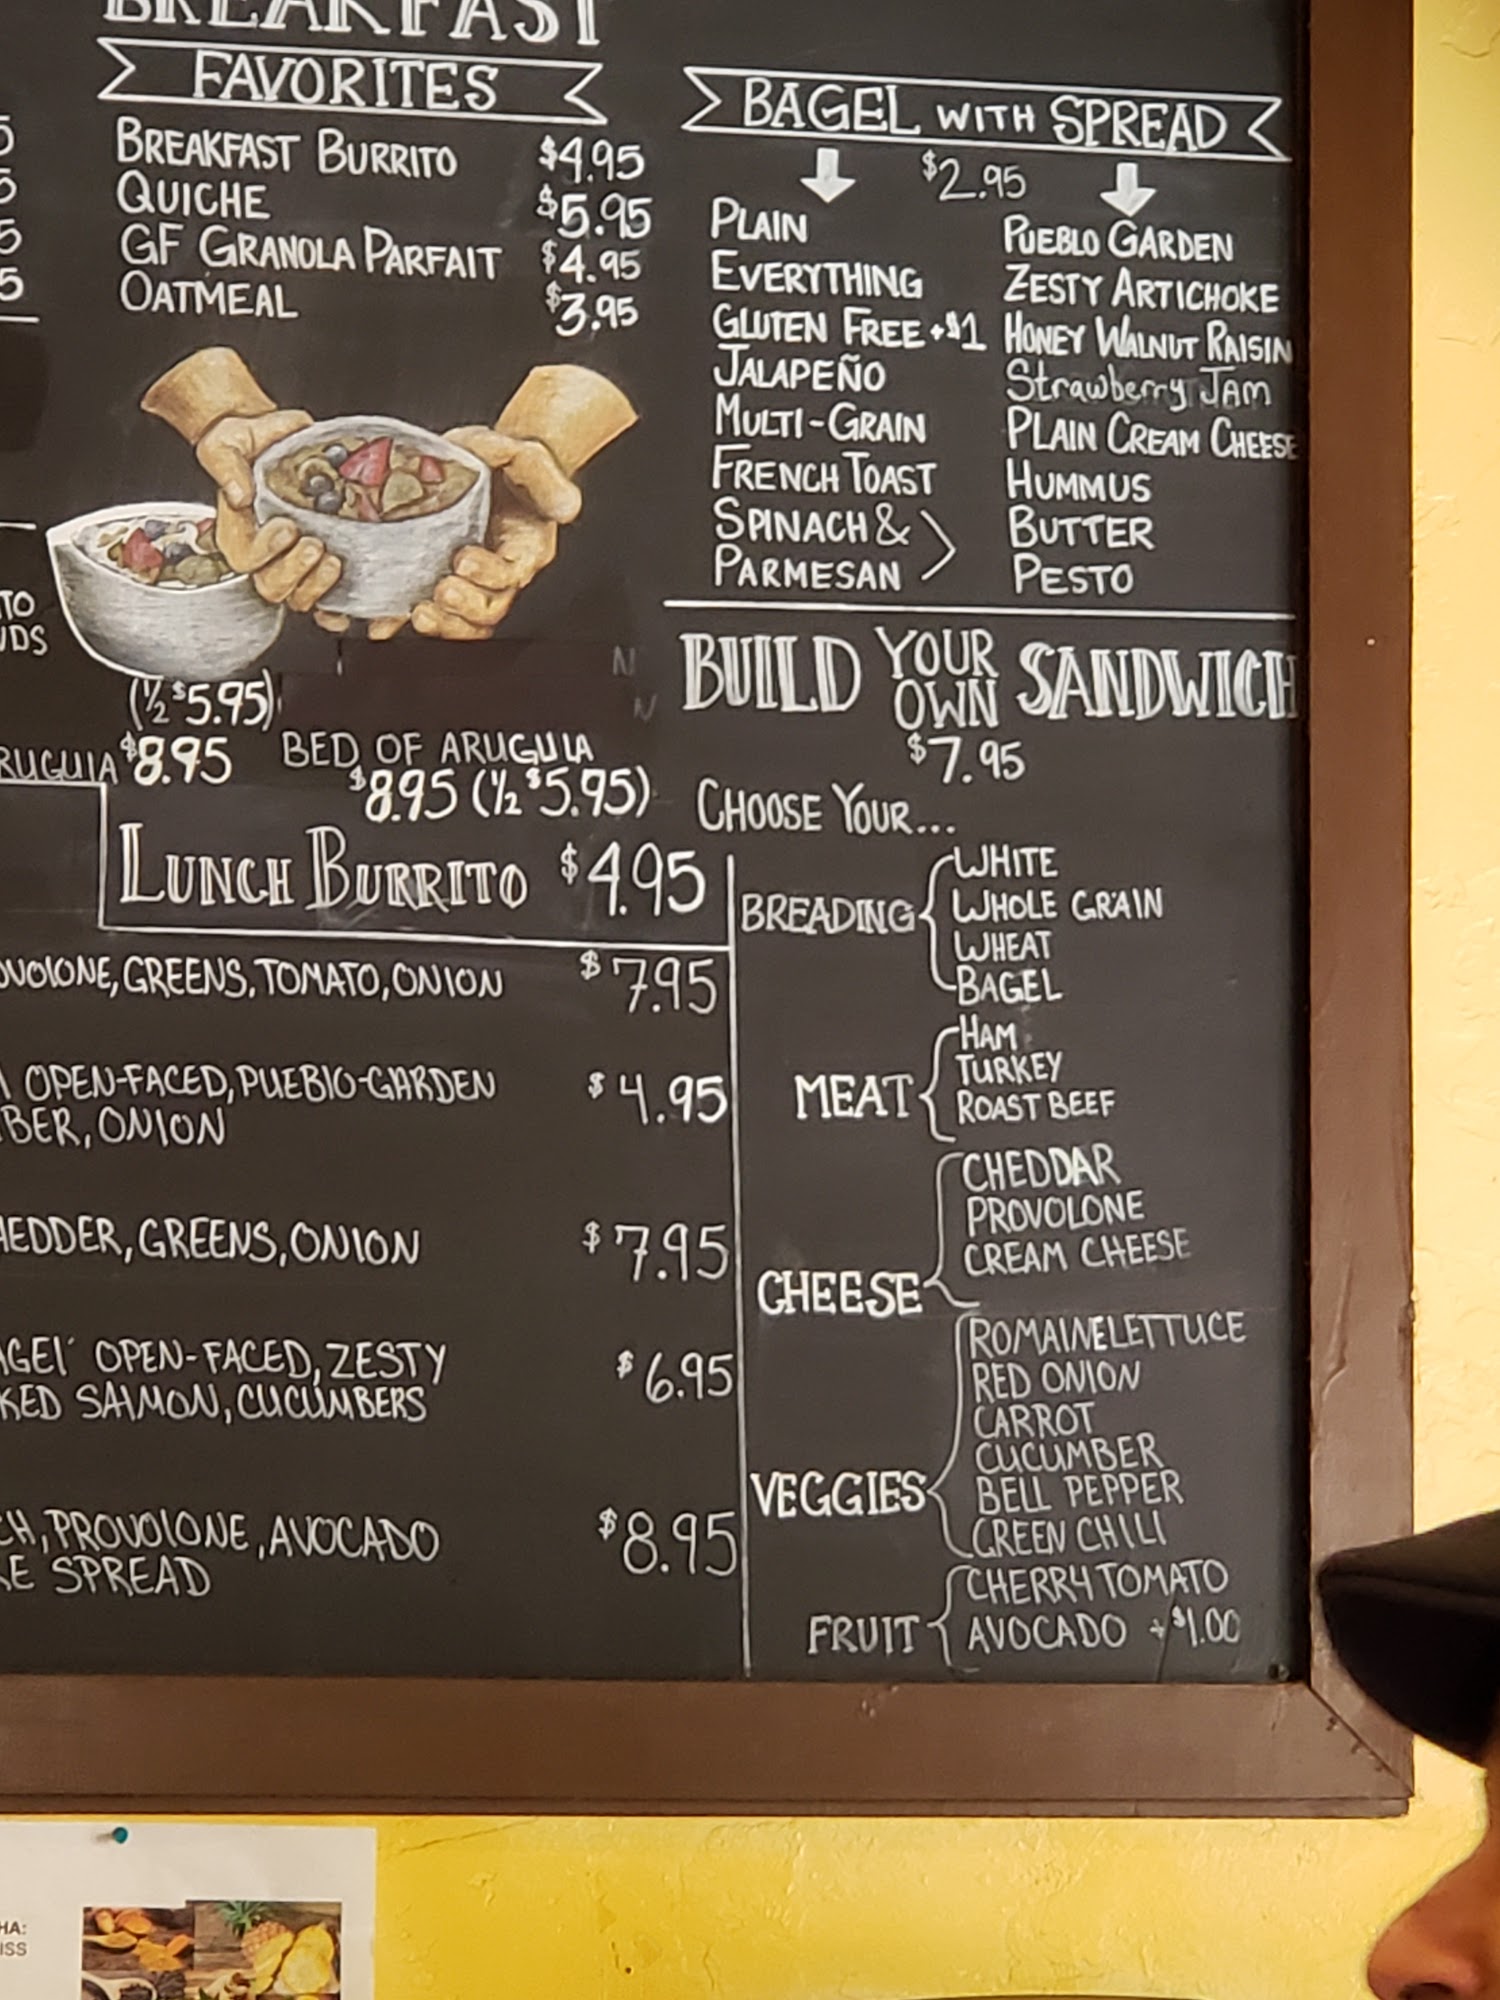 BREAKFAST
FAVORITES
BREAKFAST BURRITO $4.95
QUICHE $5.95
GF GRANOLA PARFAIT $4.95
OATMEAL $3.95
BAGEL WITH SPREAD
$2.95
PLAIN
EVERYTHING
GLUTEN FREE +$1
JALAPEÑO
MULTI-GRAIN
FRENCH TOAST
SPINACH &
PARMESAN
PUEBLO GARDEN
ZESTY ARTICHOKE
HONEY WALNUT RAISIN
Strawberry JAM
PLAIN CREAM CHEESE
HUMMUS
BUTTER
PESTO
TO
UDS
(½ $5.95)
RUGULA $8.95
BED OF ARUGULA
$8.95 (½ $5.95)
LUNCH BURRITO $4.95
OVOLONE, GREENS, TOMATO, ONION $7.95
OPEN-FACED, PUEBLO-GARDEN $4.95
BER, ONION
HEDDER, GREENS, ONION $7.95
AGEL OPEN-FACED, ZESTY $6.95
KED SALMON, CUCUMBERS
CH, PROVOLONE, AVOCADO $8.95
KE SPREAD
BUILD YOUR OWN SANDWICH
$7.95
CHOOSE YOUR...
BREADING
WHITE
WHOLE GRAIN
WHEAT
BAGEL
MEAT
HAM
TURKEY
ROAST BEEF
CHEESE
CHEDDAR
PROVOLONE
CREAM CHEESE
VEGGIES
ROMAINE LETTUCE
RED ONION
CARROT
CUCUMBER
BELL PEPPER
GREEN CHILI
FRUIT
CHERRY TOMATO
AVOCADO + $1.00
HA:
ISS